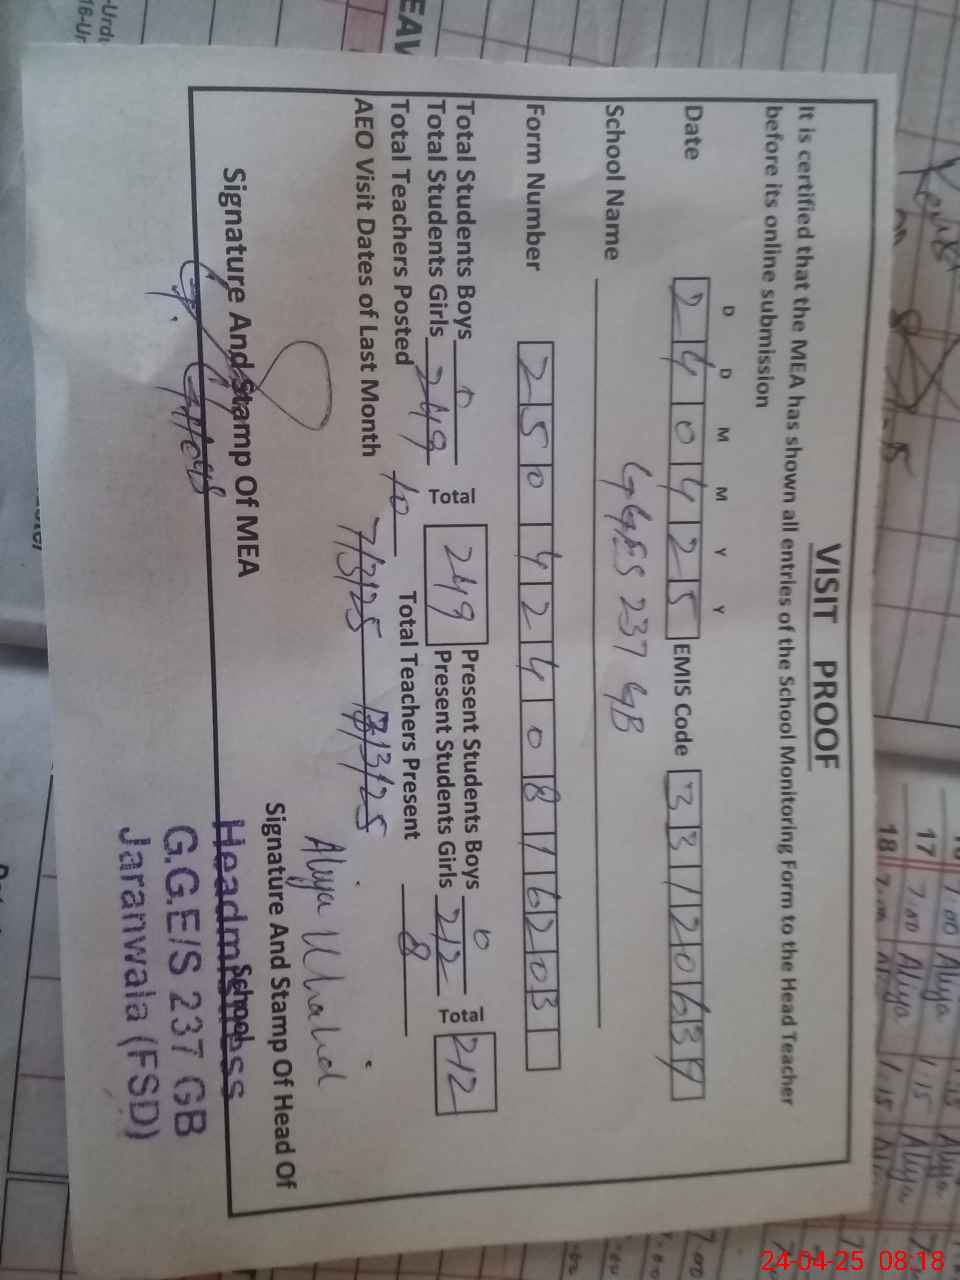 VISIT PROOF
It is certified that the MEA has shown all entries of the School Monitoring Form to the Head Teacher
before its online submission
D D M M Y Y
Date 2 4 0 4 2 5 EMIS Code 3 3 1 2 0 6 3 9
School Name GGES 237 GB
Form Number 2 5 0 4 2 4 0 8 1 6 2 0 3
Total Students Boys 0 Present Students Boys 0
Total Students Girls 249 Total 249 Present Students Girls 212 Total 212
Total Teachers Posted 10 Total Teachers Present 8
AEO Visit Dates of Last Month 7/3/25 13/3/25
Aliya
Signature And Stamp Of MEA
Signature And Stamp Of Head Of
School
Headmistress
G.G.E/S 237 GB
Jaranwala (FSD)
17 7.00 Aliya 1.15 Aliya
18 7.00
24-04-25 08:18